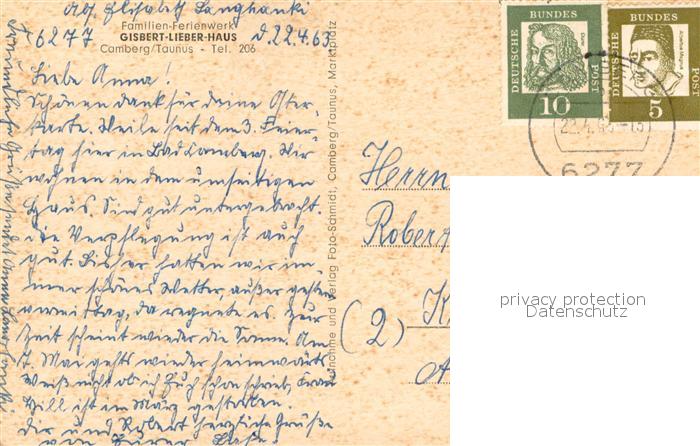 Abs. Elisabeth Langhanki
Familien-Ferienwerk
GISBERT-LIEBER-HAUS
6277
Camberg/Taunus - Tel. 206
d. 22.4.63
Liebe Anna!
Schönen Dank für deine Oster-
karte. Weile seit dem 3. Feier-
tag hier in Bad Camberg. Wir
wohnen in dem umseitigen
Haus. Sind gut untergebracht.
die Verpflegung ist auch
gut. Bisher hatten wir im-
mer schönes Wetter, außer gestern
vormittag, da regnete es. Zur
Zeit scheint wieder die Sonne. Am
7. Mai gehts wieder heimwärts
Weiß nicht ob ich Euch schon schrieb, Frau
Hill ist im März gestorben.
Dir und Robert herzliche Grüße
von Eurer Liesel
Aufnahme und Verlag Foto-Schmidt, Camberg/Taunus, Marktplatz
DEUTSCHE BUNDES POST
Dürer
10
DEUTSCHE BUNDES POST
Albertus Magnus
5
22.4.63-13
6277
Herrn
Rober
(2) K
A
privacy protection
Datenschutz